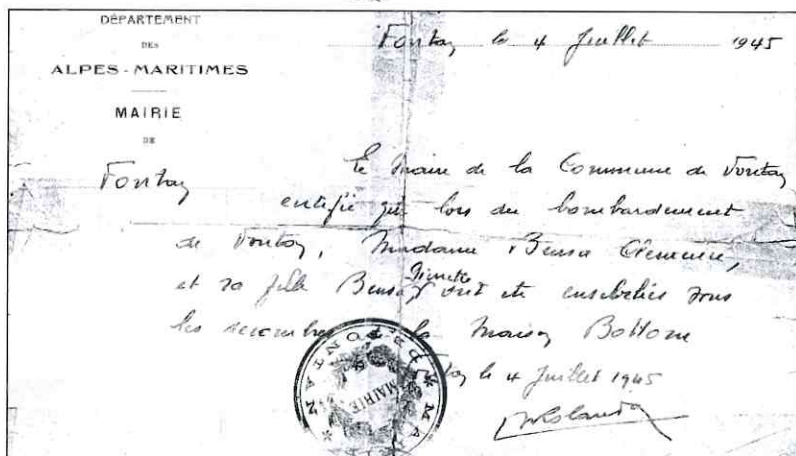 DÉPARTEMENT
DES
ALPES-MARITIMES
MAIRIE
DE
Fontan
Fontan le 4 Juillet 1945
Le Maire de la Commune de Fontan
certifie que lors du bombardement
de Fontan, Madame Bensa
et sa fille Bensa Pierrette ont été ensevelies sous
les décombres la Maison
le 4 Juillet 1945
MAIRIE